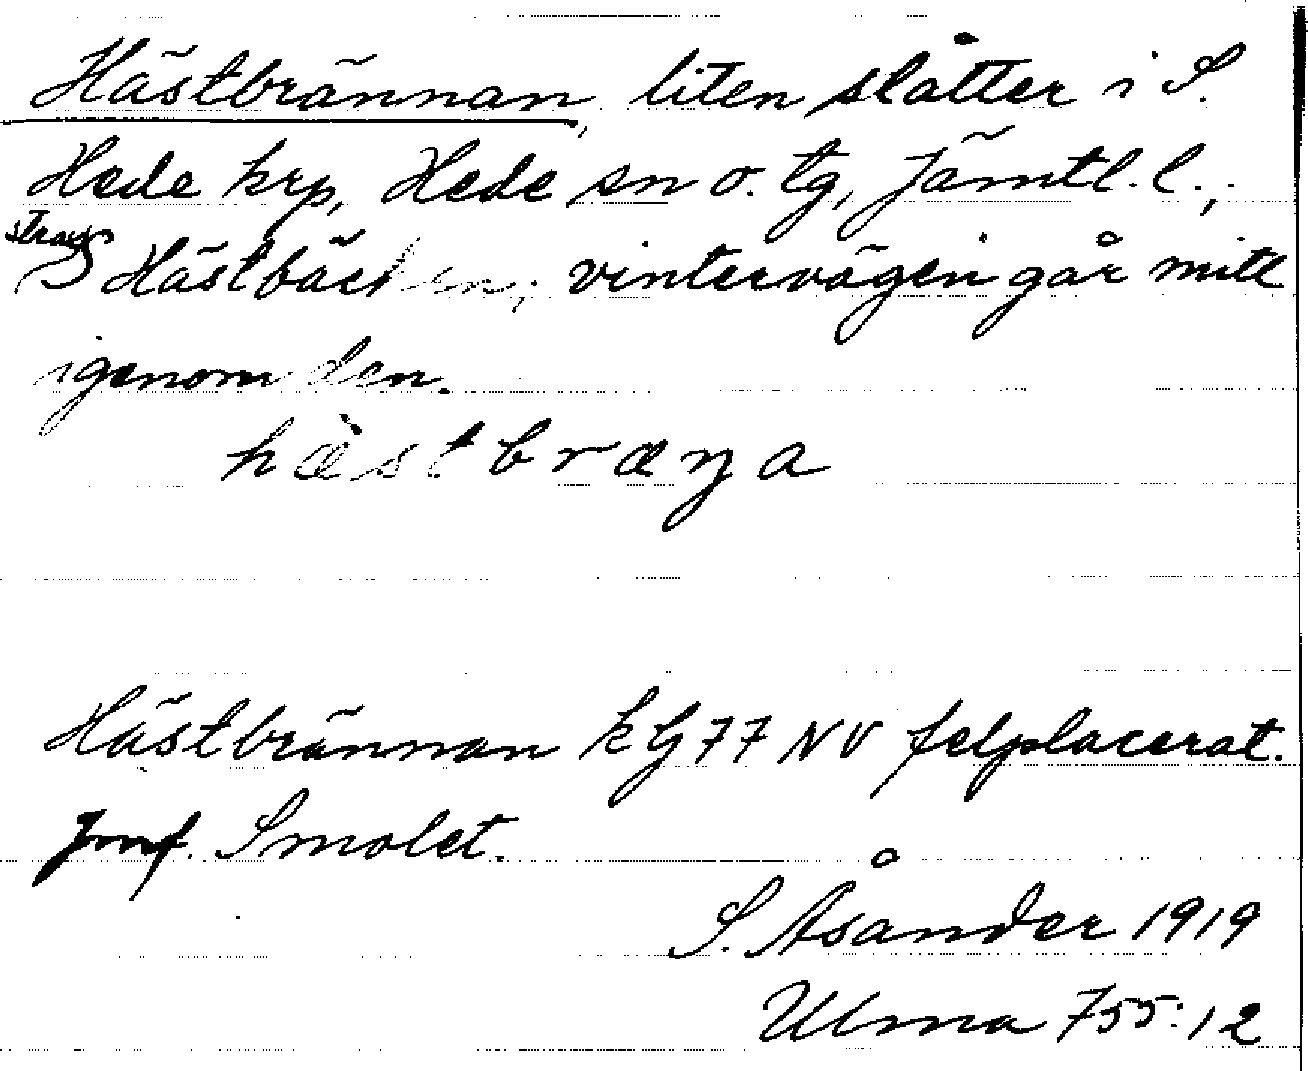 Hästbrännan, liten slåtter i S.
Hede krp, Hede sn o. tg, Jämtl. l.,
strax S Hästbäcken; vintervägen går mitt
igenom den.
hæ̀stbræŋa
Hästbrännan kG77 NV felplacerat.
Jmf. Smolet.
S. Åsander 1919
Ulma 755:12